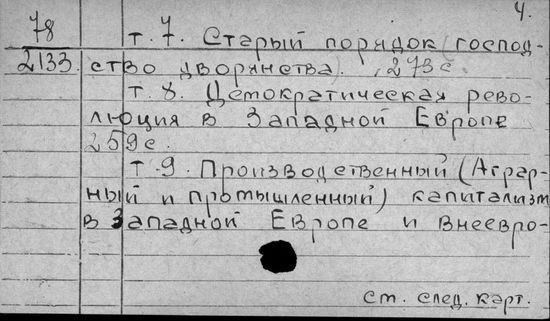 4.
78
2133
т. 7. Старый порядок (господ-
ство дворянства). 273 с.
т. 8. Демократическая рево-
люция в Западной Европе
259 с.
т. 9. Производственный (Аграр-
ный и промышленный) капитализм
в Западной Европе и внеевро-
ст. след. карт.